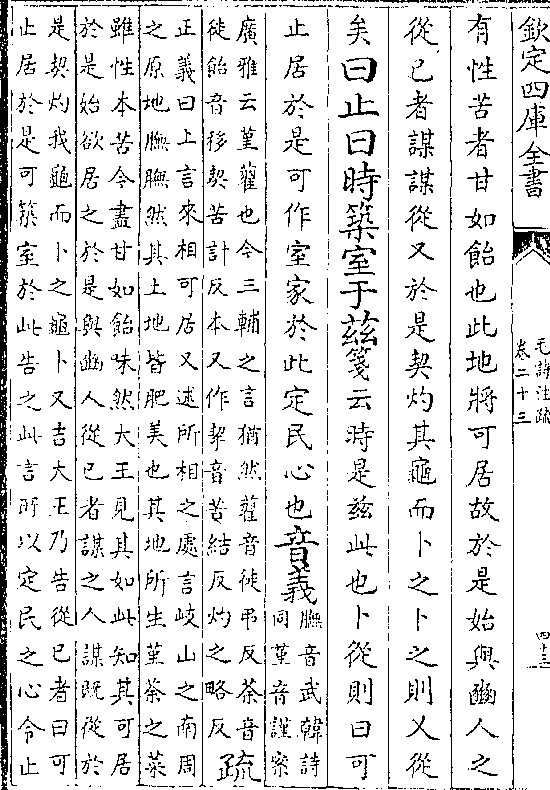 欽定四庫全書
毛詩注疏
卷二十三
四十三
有性苦者甘如飴也此地將可居故於是始與豳人之
從已者謀謀從又於是契灼其龜而卜之卜之則又從
矣曰止曰時築室于茲箋云時是茲此也卜從則曰可
止居於是可作室家於此定民心也音義膴音武韓詩
同堇音謹案
廣雅云堇藋也今三輔之言猶然藋音徒弔反荼音
徒飴音移契苦計反本又作挈音苦結反灼之略反疏
正義曰上言來相可居又述所相之處言岐山之南周
之原地膴膴然其土地皆肥美也其地所生堇荼之菜
雖性本苦今盡甘如飴味然大王見其如此知其可居
於是始欲居之於是與豳人從已者謀之人謀既從於
是契灼我龜而卜之龜卜又吉大王乃告從已者曰可
止居於是可築室於此告之此言所以定民之心令止